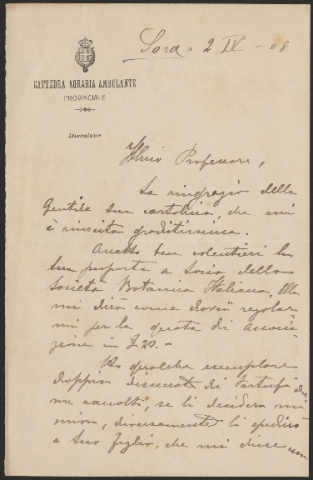 Sora - 2 IV - 08
CATTEDRA AGRARIA AMBULANTE
PROVINCIALE
Direzione
Professore,
La ringrazio della
gentile sua cartolina, che mi
è riuscita graditissima.
Accetto ben volentieri la
sua proposta a socio della
Società Botanica Italiana, Ella
mi dirà come dovrò regolar
mi per la quota di associa
zione in £ 20.-
Ho qualche esemplare
doppio di tartufi da
me raccolti, se li desidera mi
diversamente li spedirò
a suo figlio, che mi disse non